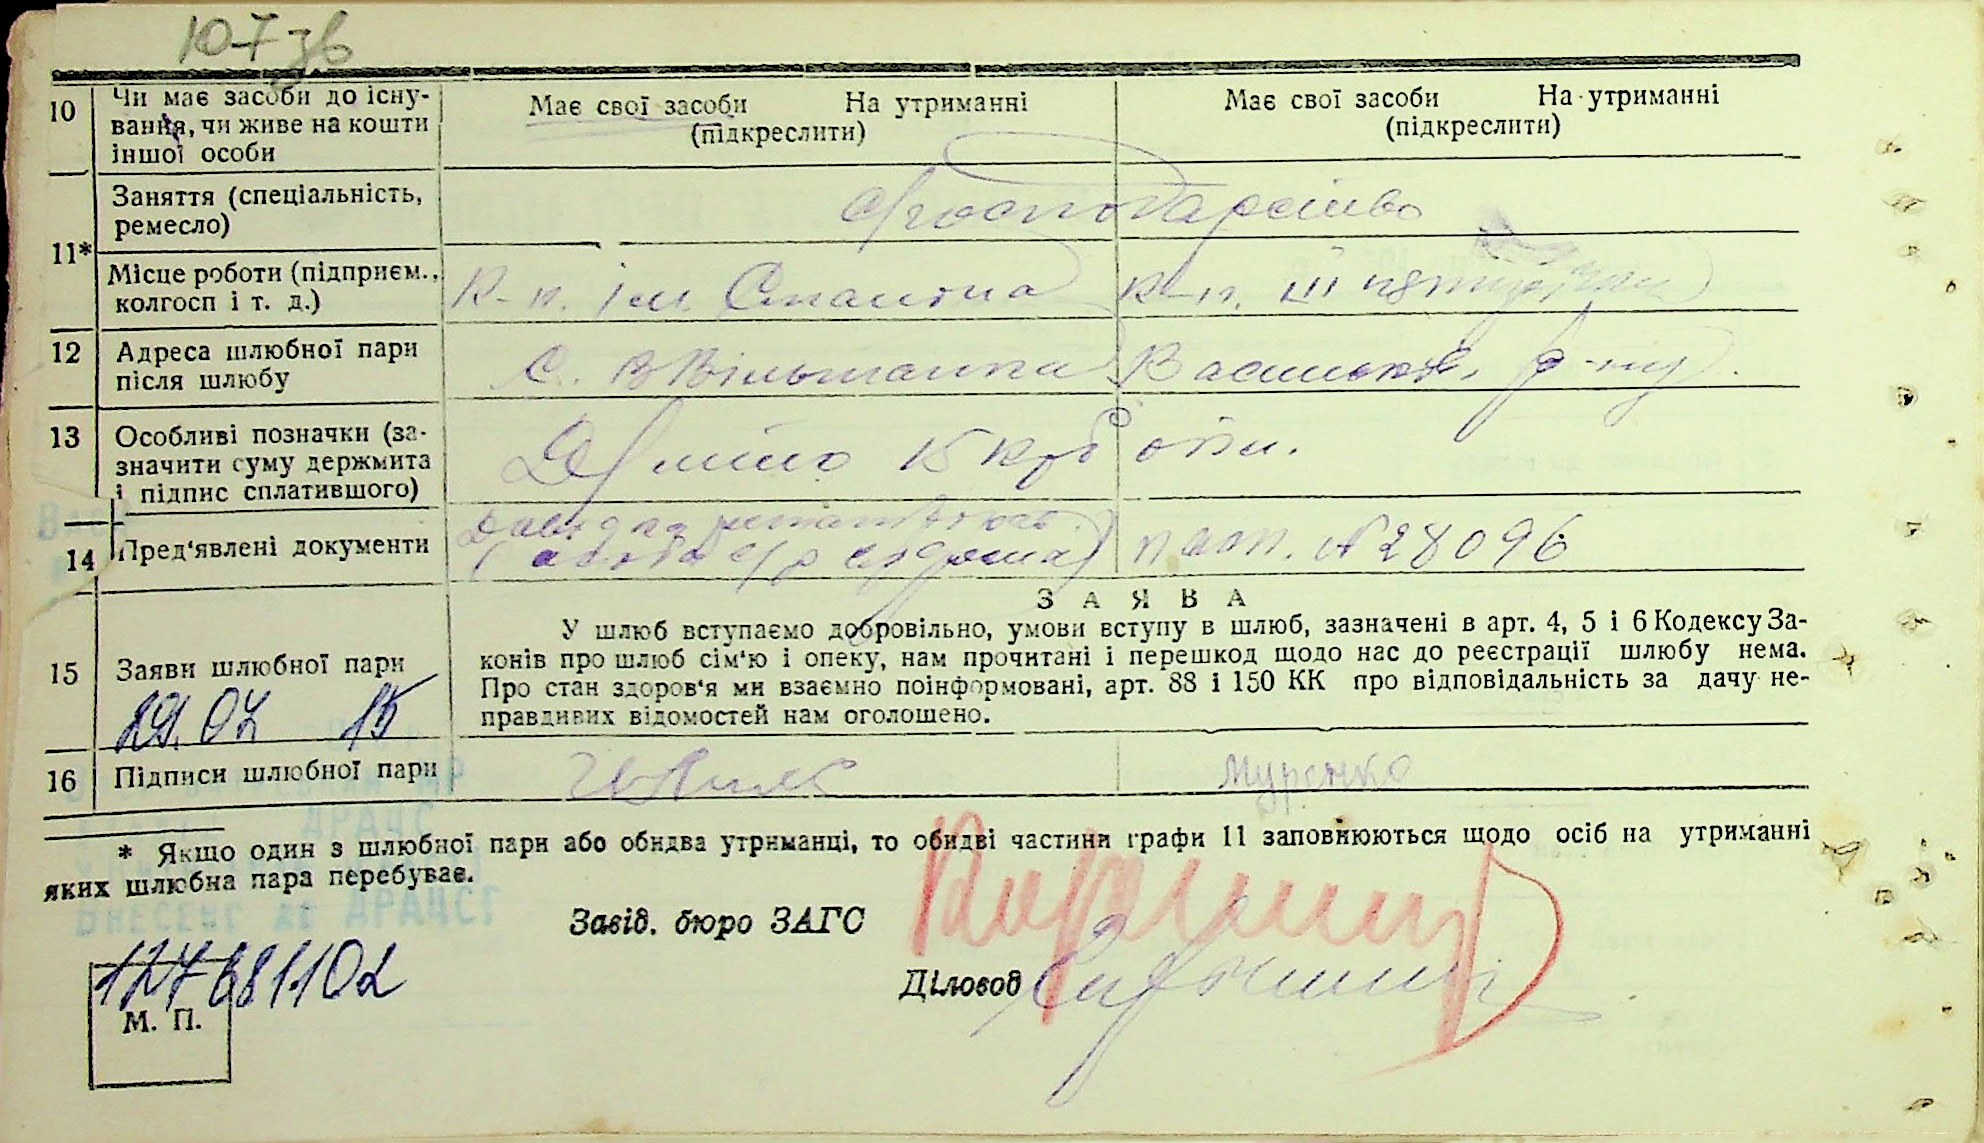 107 зв
10 Чи має засоби до існу-
вання, чи живе на кошти
іншої особи
Має свої засоби На утриманні
(підкреслити)
Має свої засоби На утриманні
(підкреслити)
11*
Заняття (спеціальність,
ремесло)
с/господарство
Місце роботи (підприєм.,
колгосп і т. д.)
К-п. ім. Сталіна
К-п. ІІІ
12 Адреса шлюбної пари
після шлюбу
С. В Вільшанка Васильків. р-ну
13 Особливі позначки (за-
значити суму держмита
і підпис сплатившого)
Д/мито 15 крб
14 Пред'явлені документи
пасп. №28096
ЗАЯВА
15 Заяви шлюбної пари
29.07 15
У шлюб вступаємо добровільно, умови вступу в шлюб, зазначені в арт. 4, 5 і 6 Кодексу За-
конів про шлюб сім'ю і опеку, нам прочитані і перешкод щодо нас до реєстрації шлюбу нема.
Про стан здоров'я ми взаємно поінформовані, арт. 88 і 150 КК про відповідальність за дачу не-
правдивих відомостей нам оголошено.
16 Підписи шлюбної пари
Муренко
ДРАЦС
* Якщо один з шлюбної пари або обидва утриманці, то обидві частини графи 11 заповнюються щодо осіб на утриманні
яких шлюбна пара перебуває.
Внесено до ДРАЦСГ
Завід. бюро ЗАГС
Діловод
127681102
М. П.